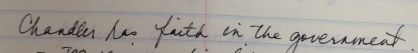 Chandler has faith in the government